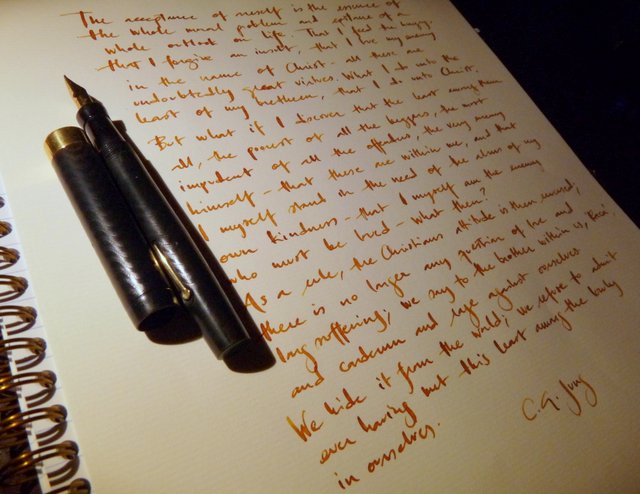 The acceptance of oneself is the essence of
the whole moral problem and epitome of a
whole outlook on life. That I feed the hungry,
that I forgive an insult, that I love my enemy
in the name of Christ - all these are
undoubtedly great virtues. What I do unto the
least of my brethren, that I do unto Christ.
But what if I discover that the least among them
all, the poorest of all the beggars, the most
impudent of all the offenders, the very enemy
himself - that these are within me, and that
I myself stand in the need of the alms of my
own kindness - that I myself am the enemy
who must be loved - what then?
As a rule, the Christian's attitude is then reversed,
there is no longer any question of love and
long suffering; we say to the brother within us, 'Raca',
and condemn and rage against ourselves
We hide it from the world; we refuse to admit
ever having met this least among the lowly
in ourselves.
C. G. Jung